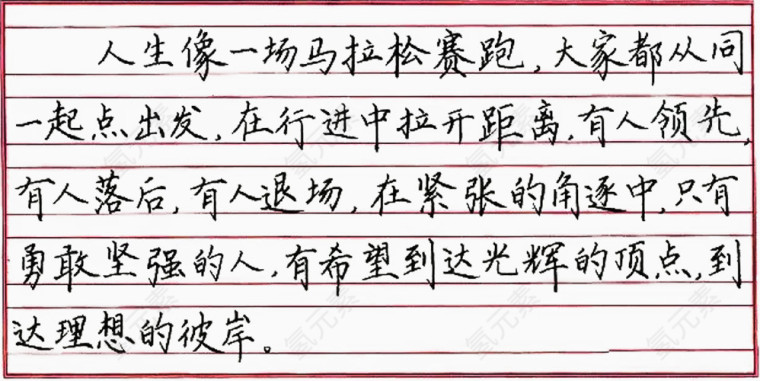 人生像一场马拉松赛跑,大家都从同
一起点出发,在行进中拉开距离,有人领先,
有人落后,有人退场,在紧张的角逐中,只有
勇敢坚强的人,有希望到达光辉的顶点,到
达理想的彼岸。